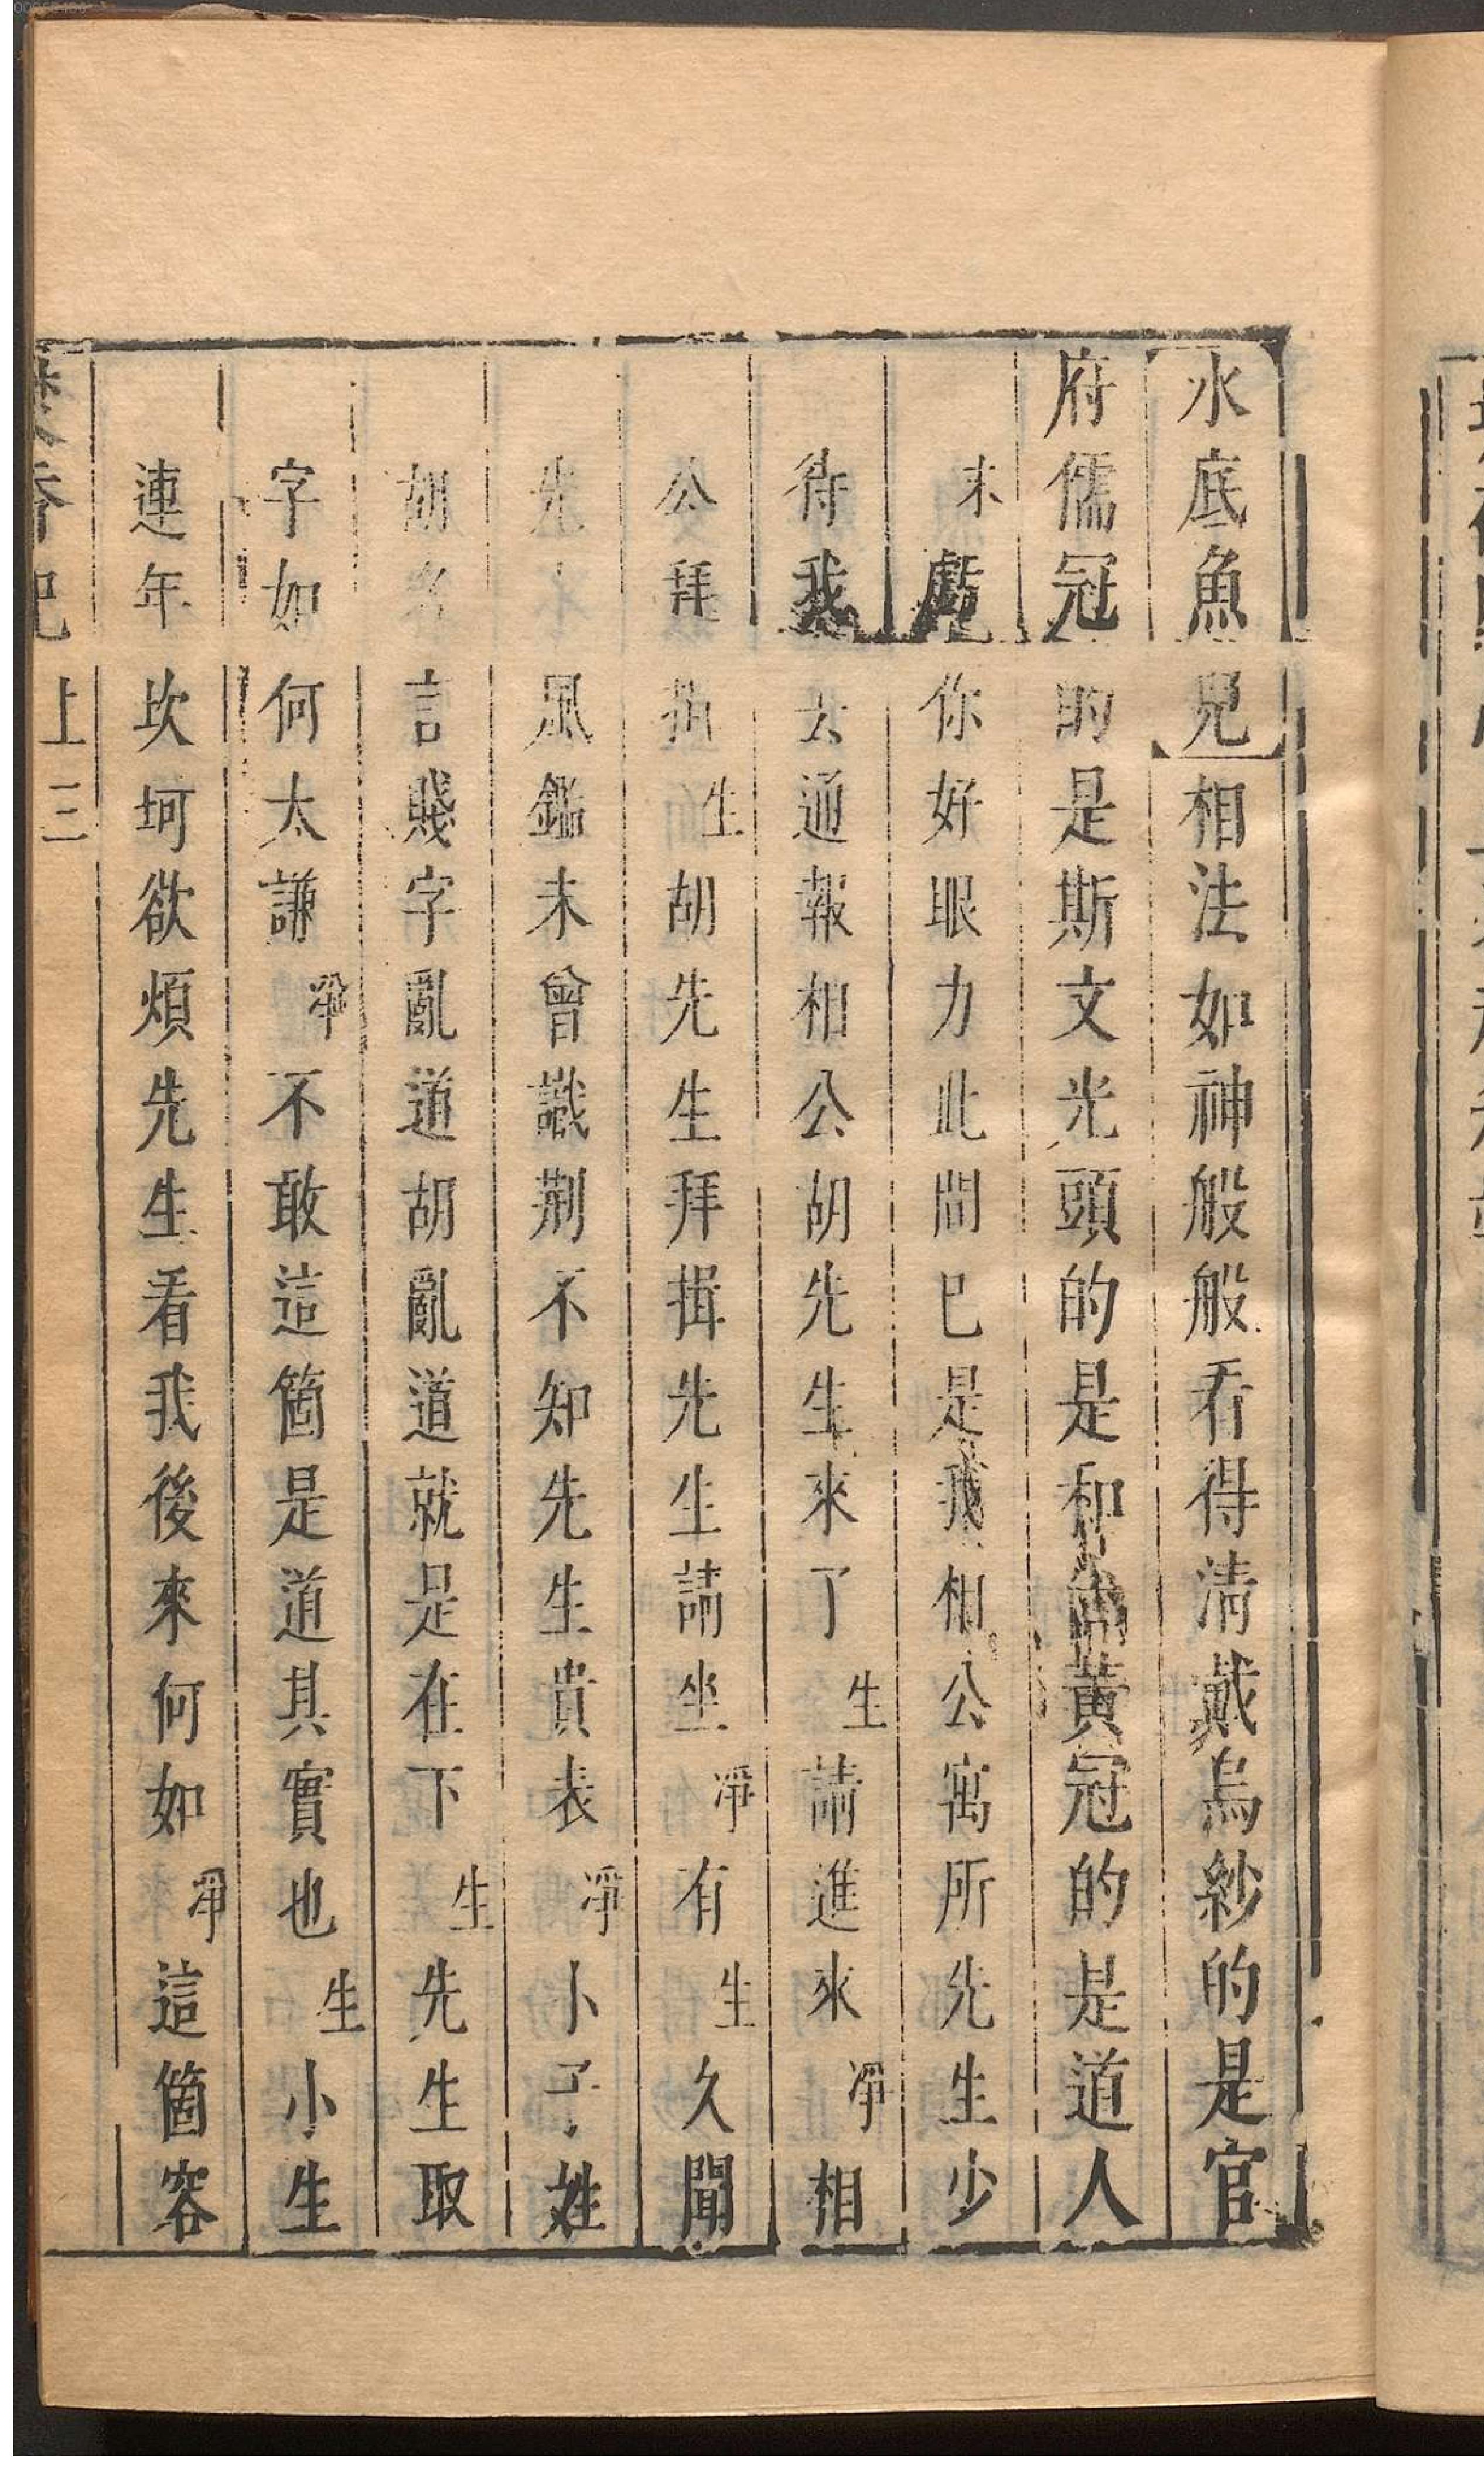 水底魚兒相法如神般般看得清戴烏紗的是官
府儒冠的是斯文光頭的是和尚黃冠的是道人
末虧你好眼力此間已是我相公寓所先生少
待我去通報相公胡先生來了生請進來淨相
公拜揖生胡先生拜揖先生請坐淨有生久聞
先風鑑未曾識荆不知先生貴表淨卜子姓
胡名言賤字亂道胡亂道就是在下生先生取
字如何太謙淨不敢這箇是道其實也生小生
連年坎坷欲煩先生看我後來何如淨這箇容
香記 上 三